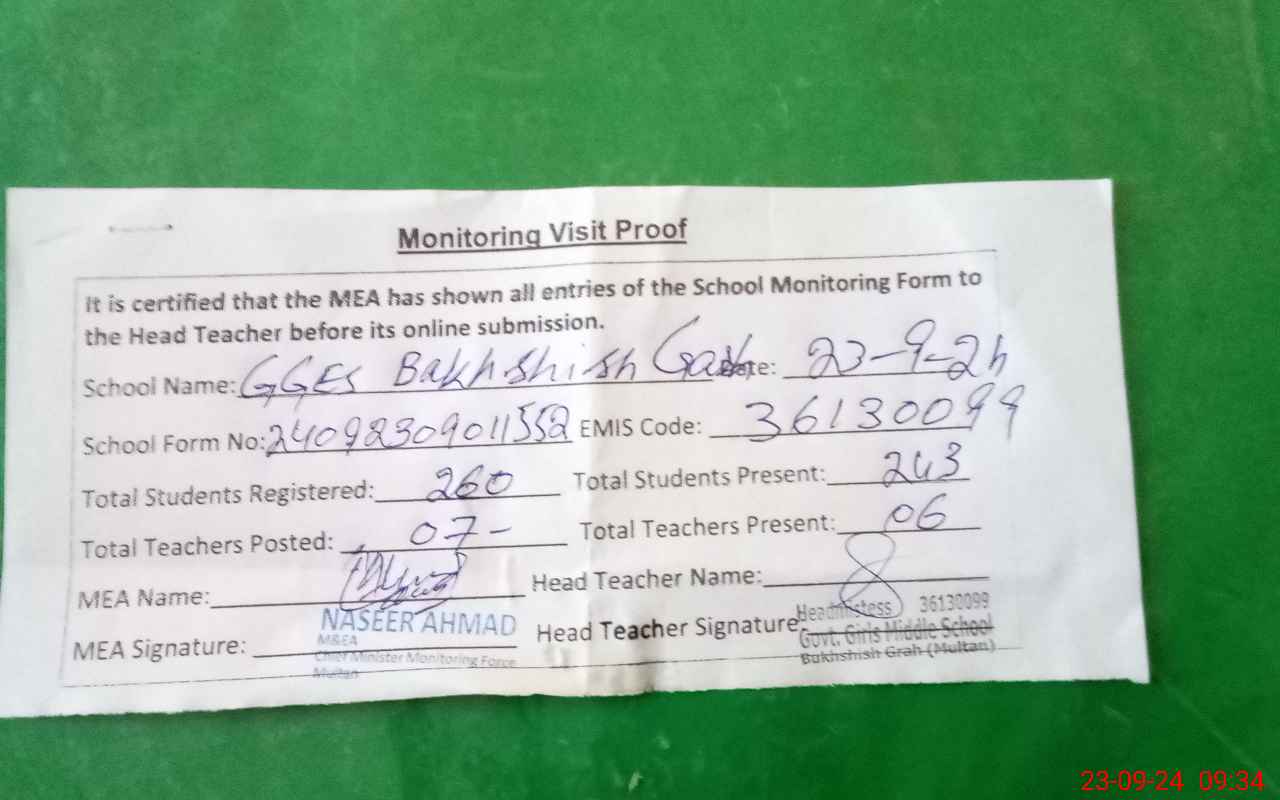 Monitoring Visit Proof
It is certified that the MEA has shown all entries of the School Monitoring Form to
the Head Teacher before its online submission.
School Name: GGES Bakhshish Garh Date: 23-9-24
School Form No: 2409230901 1552 EMIS Code: 36130099
Total Students Registered: 260 Total Students Present: 243
Total Teachers Posted: 07- Total Teachers Present: 06
MEA Name: Head Teacher Name:
NASEER AHMAD Headmistess 36130099
MEA Signature: M&EA Head Teacher Signature: Govt. Girls Middle School
Chief Minister Monitoring Force Bakhshish Grah (Multan)
Multan
23-09-24 09:34